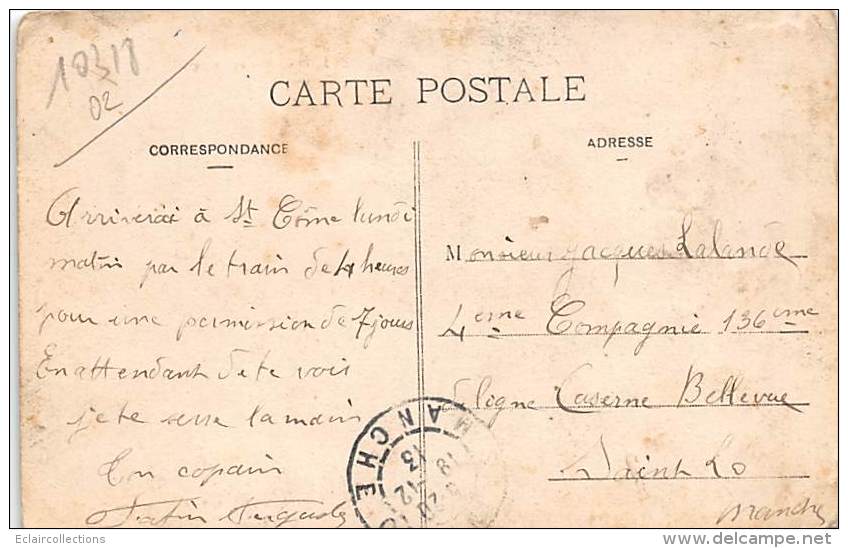 10318
02
CARTE POSTALE
CORRESPONDANCE
ADRESSE
Arriverai à St Côme lundi
matin par le train de 4 heures
pour une permission de 7 jours
En attendant de te voir
je te serre la main
Ton copain
Monsieur Jacques Lalande
4eme Compagnie 136eme
de ligne Caserne Bellevue
Saint Lo
Manche
MANCHE
Eclaircollections
delcampe.net